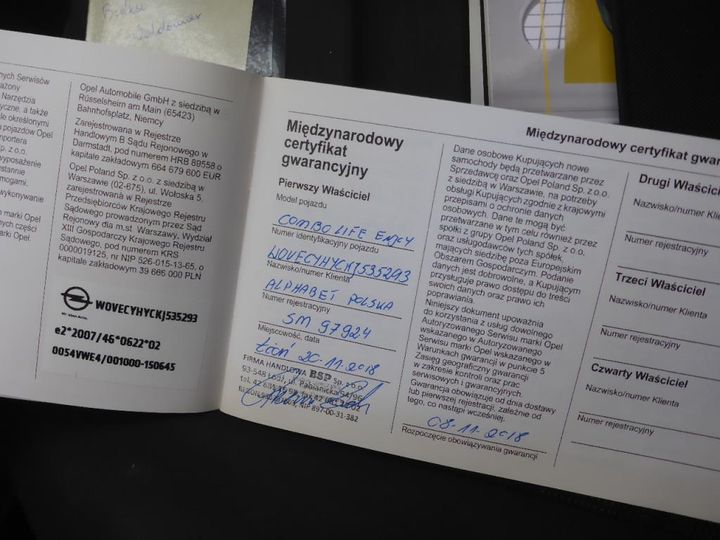 nych Serwisów
Narzędzia
yczne, a także
le określonymi
pojazdów Opel
mportera
z o.o.
wyposażenie
stannie
mogami.
wykonywanie
marki Opel
ych części
arki Opel.
Opel Automobile GmbH z siedzibą w
Rüsselsheim am Main (65423)
Bahnhofsplatz, Niemcy
Zarejestrowana w Rejestrze
Handlowym B Sądu Rejonowego w
Darmstad, pod numerem HRB 89558 o
kapitale zakładowym 664 679 600 EUR
Opel Poland Sp. z o.o. z siedzibą w
Warszawie (02-675), ul. Wołoska 5,
zarejestrowana w Rejestrze
Przedsiębiorców Krajowego Rejestru
Sądowego prowadzonym przez Sąd
Rejonowy dla m.st. Warszawy, Wydział
XIII Gospodarczy Krajowego Rejestru
Sądowego, pod numerem KRS
0000019125, nr NIP 526-015-13-65, o
kapitale zakładowym 39 666 000 PLN
W0VECYHYCKJ535293
e2*2007/46*0622*02
0054VWE4/001000-150645
Międzynarodowy
certyfikat
gwarancyjny
Pierwszy Właściciel
Model pojazdu
COMBO LIFE ENJOY
Numer identyfikacyjny pojazdu
W0VECYHYCKJ535293
Nazwisko/numer Klienta
ALPHABET POLSKA
Numer rejestracyjny
SM 97924
Miejscowość, data
20-11-2018
FIRMA HANDLOWA BSP sp. z o.o.
93-548 Łódź, ul. Pabianicka
NIP 897-00-31-382
Międzynarodowy certyfikat gwar
Dane osobowe Kupujących nowe
samochody będą przetwarzane przez
Sprzedawcę oraz Opel Poland Sp. z o.o.
z siedzibą w Warszawie, na potrzeby
obsługi Kupujących zgodnie z krajowymi
przepisami o ochronie danych
osobowych. Dane te mogą być
przetwarzane w tym celu również przez
spółki z grupy Opel Poland Sp. z o.o.
oraz usługodawców tych spółek,
mających siedzibę poza Europejskim
Obszarem Gospodarczym. Podanie
danych jest dobrowolne, a Kupującym
przysługuje prawo dostępu do treści
swoich danych oraz prawo ich
poprawiania.
Niniejszy dokument upoważnia
do korzystania z usług dowolnego
Autoryzowanego Serwisu marki Opel
wskazanego w Autoryzowanego
Serwisu marki Opel wskazanego w
Warunkach gwarancji w punkcie 5
Zasięg geograficzny gwarancji
w zakresie kontroli oraz prac
serwisowych i gwarancyjnych.
Gwarancja obowiązuje od dnia dostawy
lub pierwszej rejestracji, zależnie od
tego, co nastąpi wcześniej.
08-11-2018
Rozpoczęcie obowiązywania gwarancji
Drugi Właściciel
Nazwisko/numer Klienta
Numer rejestracyjny
Trzeci Właściciel
Nazwisko/numer Klienta
Numer rejestracyjny
Czwarty Właściciel
Nazwisko/numer Klienta
Numer rejestracyjny